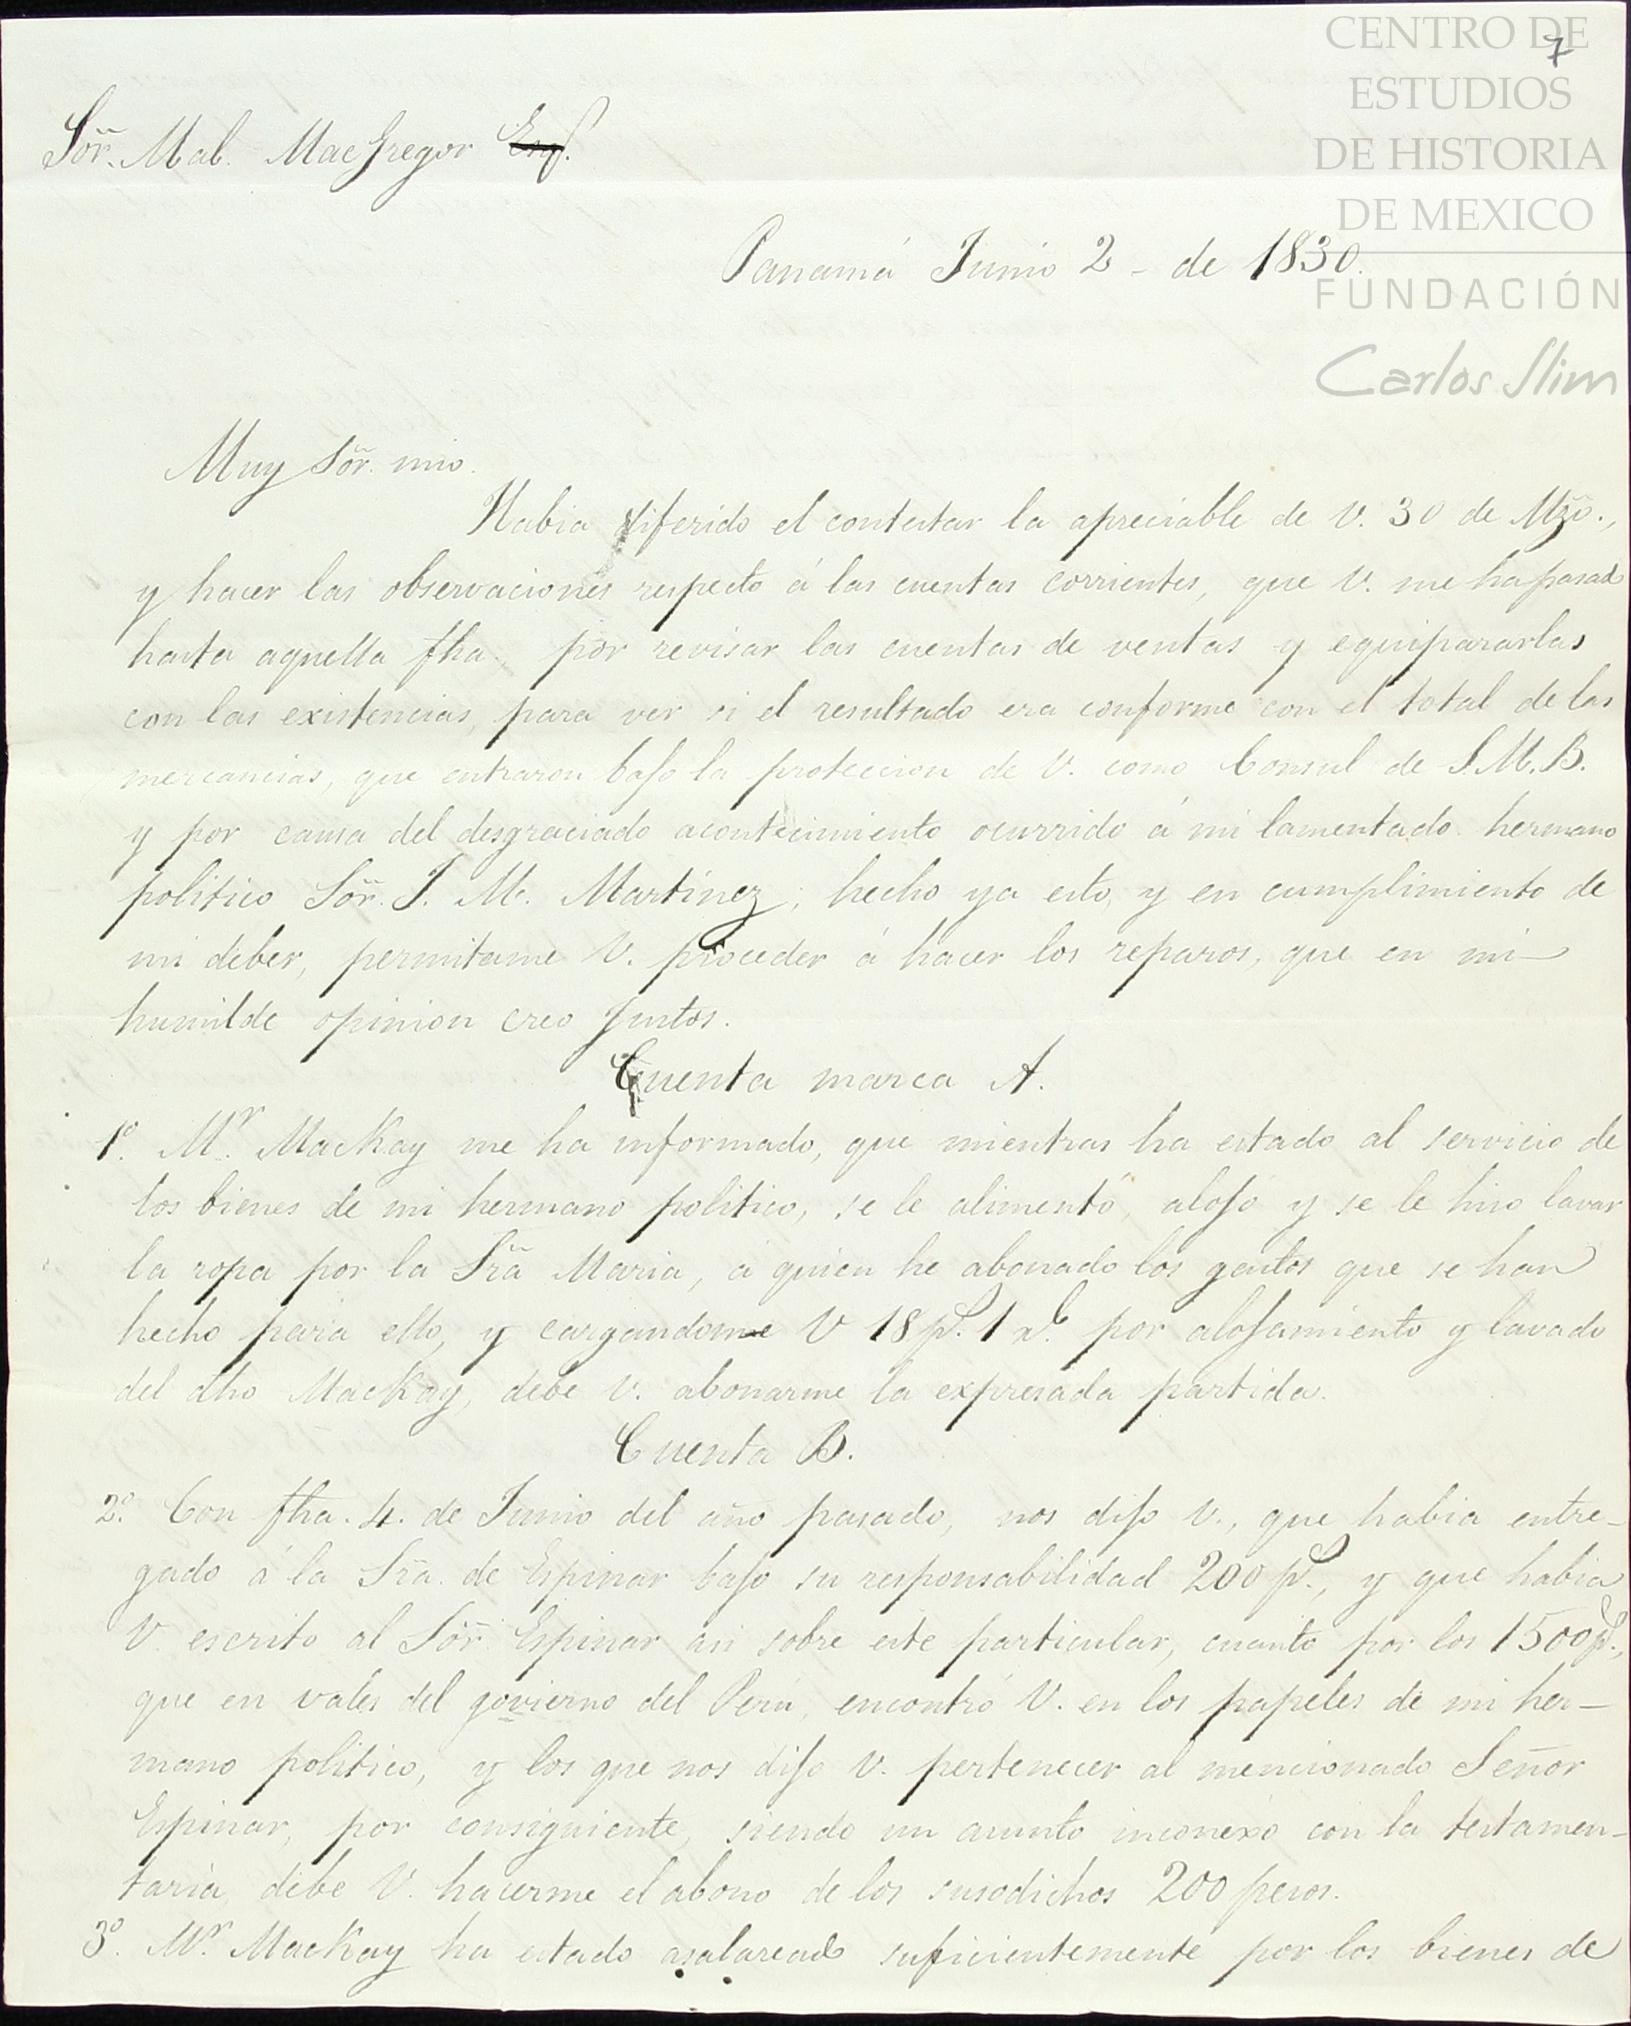 CENTRO DE
ESTUDIOS
DE HISTORIA
DE MEXICO
FUNDACIÓN
Carlos Slim
7
Sõr. Mal. MacGregor Esq.
Panamá Junio 2 - de 1830.
Muy Sõr. mio.
Habia diferido el contestar la apreciable de V. 30 de Mzõ.,
y hacer las observaciones respecto á las cuentas corrientes, que V. me ha pasado
hasta aquella fha. por revisar las cuentas de ventas y equipararlas
con las existencias, para ver si el resultado era conforme con el total de las
mercancias, que entraron bajo la proteccion de V. como Consul de S.M.B.
y por causa del desgraciado acontecimiento ocurrido á mi lamentado hermano
politico Sõr. J. M. Martínez, hecho ya esto, y en cumplimiento de
mi deber, permitame V. proceder á hacer los reparos, que en mi
humilde opinion creo justos.
Cuenta marca A.
1º. Mr. MacKay me ha informado, que mientras ha estado al servicio de
los bienes de mi hermano politico, se le alimentó, alojó y se le hiso lavar
la ropa por la Srã Maria, á quien he abonado los gastos que se han
hecho para ello, y cargandome V 18 ps. 1 rl. por alojamiento y lavado
del dho MacKay, debe V. abonarme la expresada partida.
Cuenta B.
2º. Con fha. 4. de Junio del año pasado, nos dijo V., que habia entre-
gado á la Srã. de Espinar bajo su responsabilidad 200 ps., y que habia
V. escrito al Sõr. Espinar asi sobre este particular, cuanto por los 1500 ps.,
que en vales del govierno del Perú, encontró V. en los papeles de mi her-
mano politico, y los que nos dijo V. pertenecer al mencionado Señor
Espinar, por consiguiente, siendo un asunto inconexo con la testamen-
taria, debe V. hacerme el abono de los susodichos 200 pesos.
3º. Mr. MacKay ha estado asalareado suficientemente por los bienes de